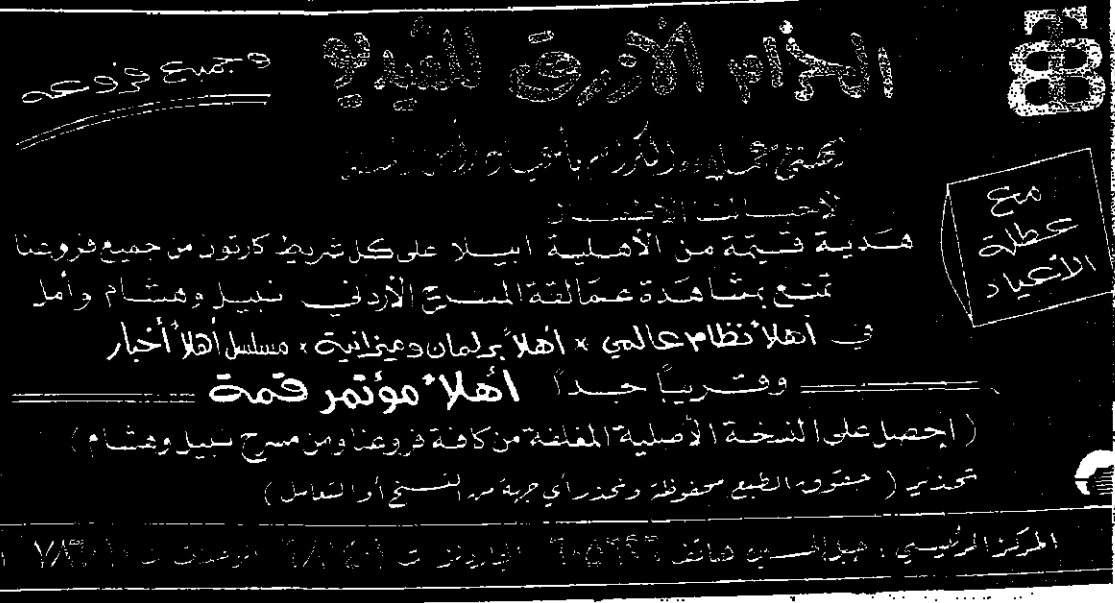 الحزام الأزرق للفيديو
وجميع فروعه
مع
عطلة
الأعياد
هدية قيّمة من الأهلية ابيلا على كل شريط كارتون من جميع فروعنا
تمتع بمشاهدة عمالقة المسرح الأردني نبيل وهشام وأمل
في أهلاً نظام عالمي × أهلاً برلمان وميزانية × مسلسل أهلاً أخبار
وقريباً جداً أهلاً مؤتمر قمة
(احصل على النسخة الأصلية المغلفة من كافة فروعنا ومن مسرح نبيل وهشام)
تحذير (حقوق الطبع محفوظة ونحذر أي جهة من النسخ أو التعامل)
المركز الرئيسي: جبل الحسين هاتف